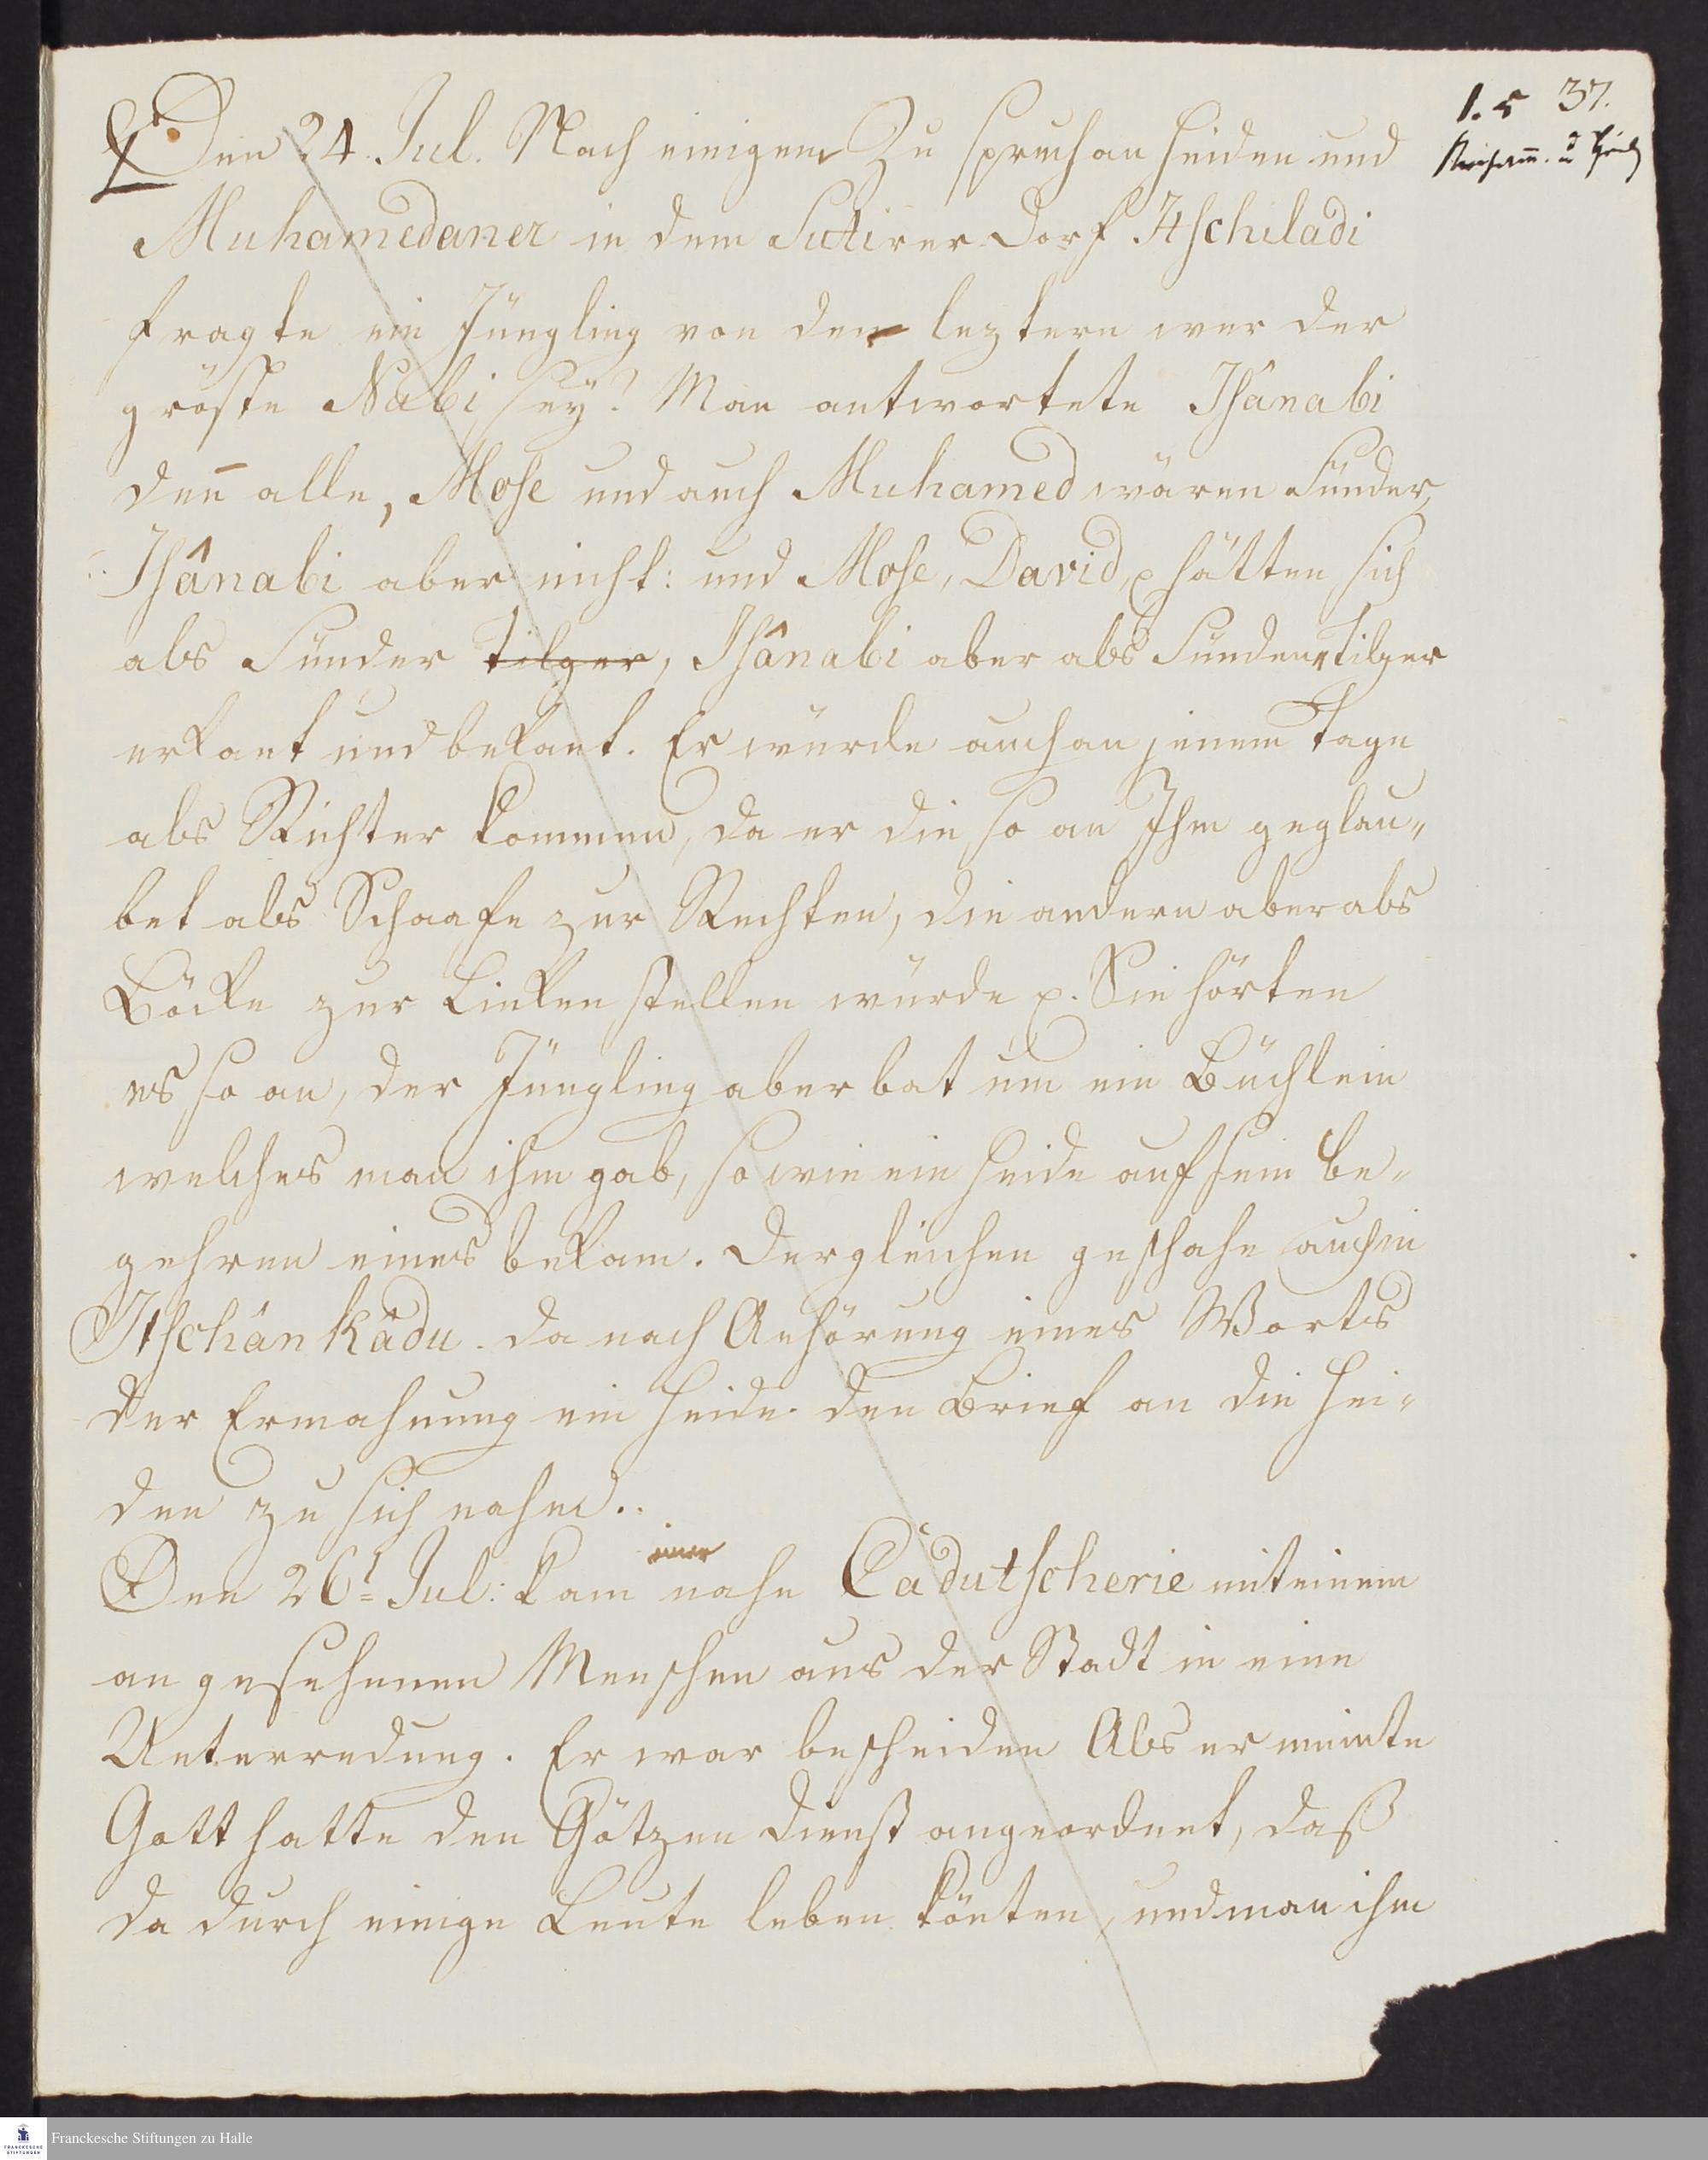 1. 5 37.
Den 24. Jul. Nach einigem Zu spruch an Heiden und
Muhamedaner in dem Sutirer Dorf Itschiladi
fragte ein Jüngling von den leztern wer der
gröste Nabi sey? Man antwortete Isânabi
deñ alle, Mose und auch Muhamed wären Sünder,
Isânabi aber nicht: und Mose, David, p hätten sich
als Sünder tilger, Isânabi aber als Sünden Tilger
erkant und bekant. Er würde auch an jenem Tage
als Richter kommen, da er die so an Ihm geglau„
bet als Schaafe zur Rechten, die andern aber als
Böcke zur Linken stellen würde p. Sie hörten
es so an, der Jüngling aber bat um ein Büchlein
welches man ihm gab, so wie ein Heide auf sein be„
gehren eines bekam. Dergleichen geschahe auch in
Itschânkâdu. da nach Anhörung eines Worts
der Ermahnung ein Heide den Brief an die Hei„
den zu sich nahm.
einer
Den 26t Jul: kam nahe Cadutscherie mit einem
an gesehenen Menschen aus der Stadt in eine
Unterredung. Er war bescheiden Als er meinte
Gott hatte den Götzen dienst angeordnet, daß
da durch einige Leute leben könten, und man ihm
Franckesche Stiftungen zu Halle